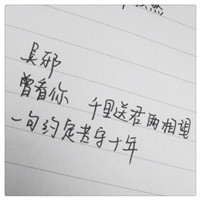 吴邪
曾看你 千里送君两相望
一句约定苦守十年